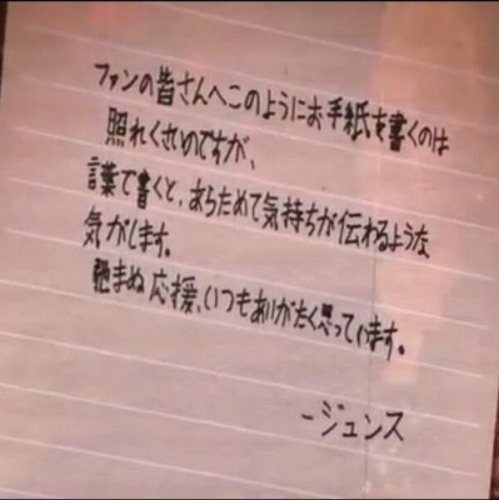 ファンの皆さんへこのようにお手紙を書くのは
照れくさいのですが、
言葉で書くと、あらためて気持ちが伝わるような
気がします。
まぬ応援、いつもありがたく思っています。
－ジュンス